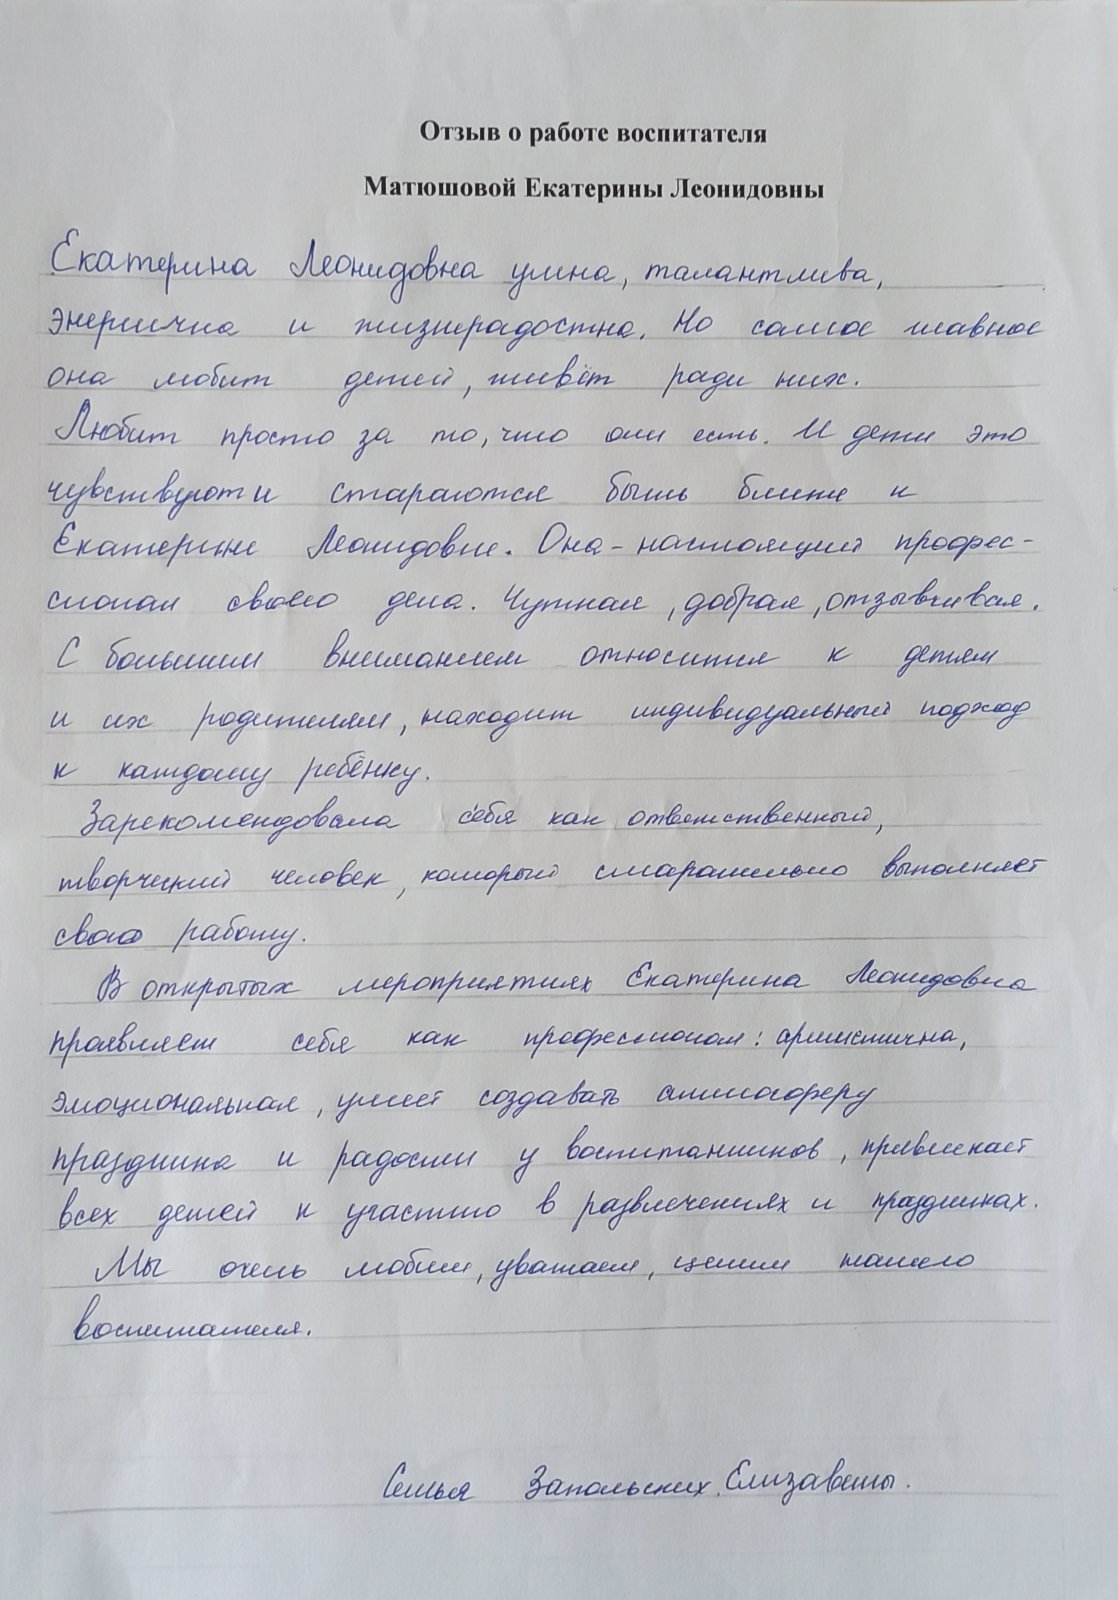 Отзыв о работе воспитателя
Матюшовой Екатерины Леонидовны
Екатерина Леонидовна умна, талантлива,
энергична и жизнерадостна. Но самое главное
она любит детей, живёт ради них.
Любит просто за то, что они есть. И дети это
чувствуют и стараются быть ближе к
Екатерине Леонидовне. Она - настоящий профес-
сионал своего дела. Чуткая, добрая, отзывчивая.
С большим вниманием относится к детям
и их родителям, находит индивидуальный подход
к каждому ребёнку.
Зарекомендовала себя как ответственный,
творческий человек, который старательно выполняет
свою работу.
В открытых мероприятиях Екатерина Леонидовна
проявляет себя как профессионал: артистична,
эмоциональная, умеет создавать атмосферу
праздника и радости у воспитанников, привлекает
всех детей к участию в развлечениях и праздниках.
Мы очень любим, уважаем, ценим нашего
воспитателя.
Семья Запольских Елизаветы.